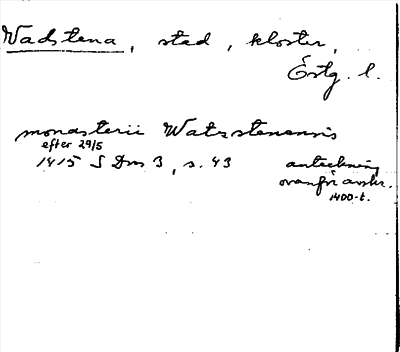 Vadstena, stad, kloster,
Östg. l.
monasterii Watzstenensis
efter 29/5
1415 S Dns 3, s. 43 anteckning
ovanför avskr.
1400-t.